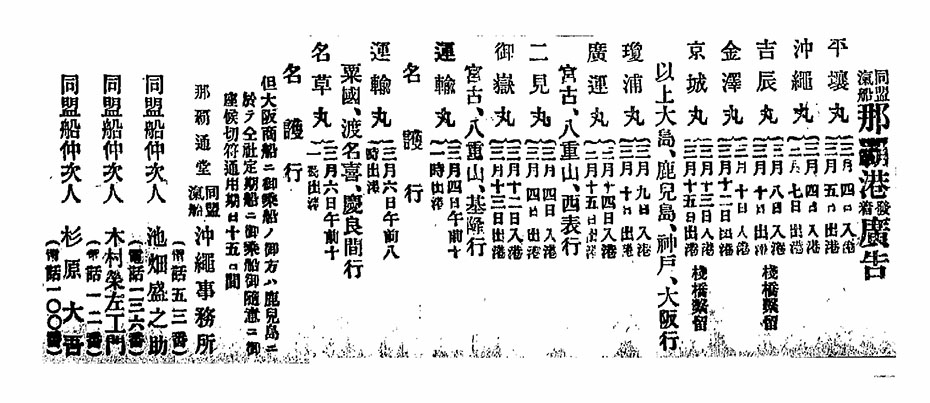 同盟
滊船
那覇港
發
着
廣告
平壤丸
三月四日入港
三月五日出港
沖繩丸
三月四日入港
三月七日出港
吉辰丸
三月八日入港
三月十日出港
棧橋繫留
金澤丸
三月十日入港
三月十二日出港
京城丸
三月十三日入港
三月十五日出港
棧橋繫留
以上大島、鹿兒島、神戸、大阪行
瓊浦丸
三月九日入港
三月十日出港
廣運丸
二月十四日入港
二月十五日出港
宮古、八重山、西表行
二見丸
三月四日入港
三月四日出港
御嶽丸
三月十二日入港
三月十三日出港
宮古、八重山、基隆行
運輸丸
三月四日午前十
一時出港
名護行
運輸丸
三月六日午前八
時出港
粟國、渡名喜、慶良間行
名草丸
三月六日午前十
一時出港
名護行
但大阪商船ニ御乘船ノ御方ハ鹿兒島ニ
於テ仝社定期船ニ御乘船御隨意ニ御
座候切符通用期日十五日間
那覇通堂
同盟
滊船
沖繩事務所
(電話五三番)
同盟船仲次人 池畑盛之助
(電話一三六番)
同盟船仲次人 木村榮左工門
(電話一二番)
同盟船仲次人 杉原大吾
(電話一〇〇番)